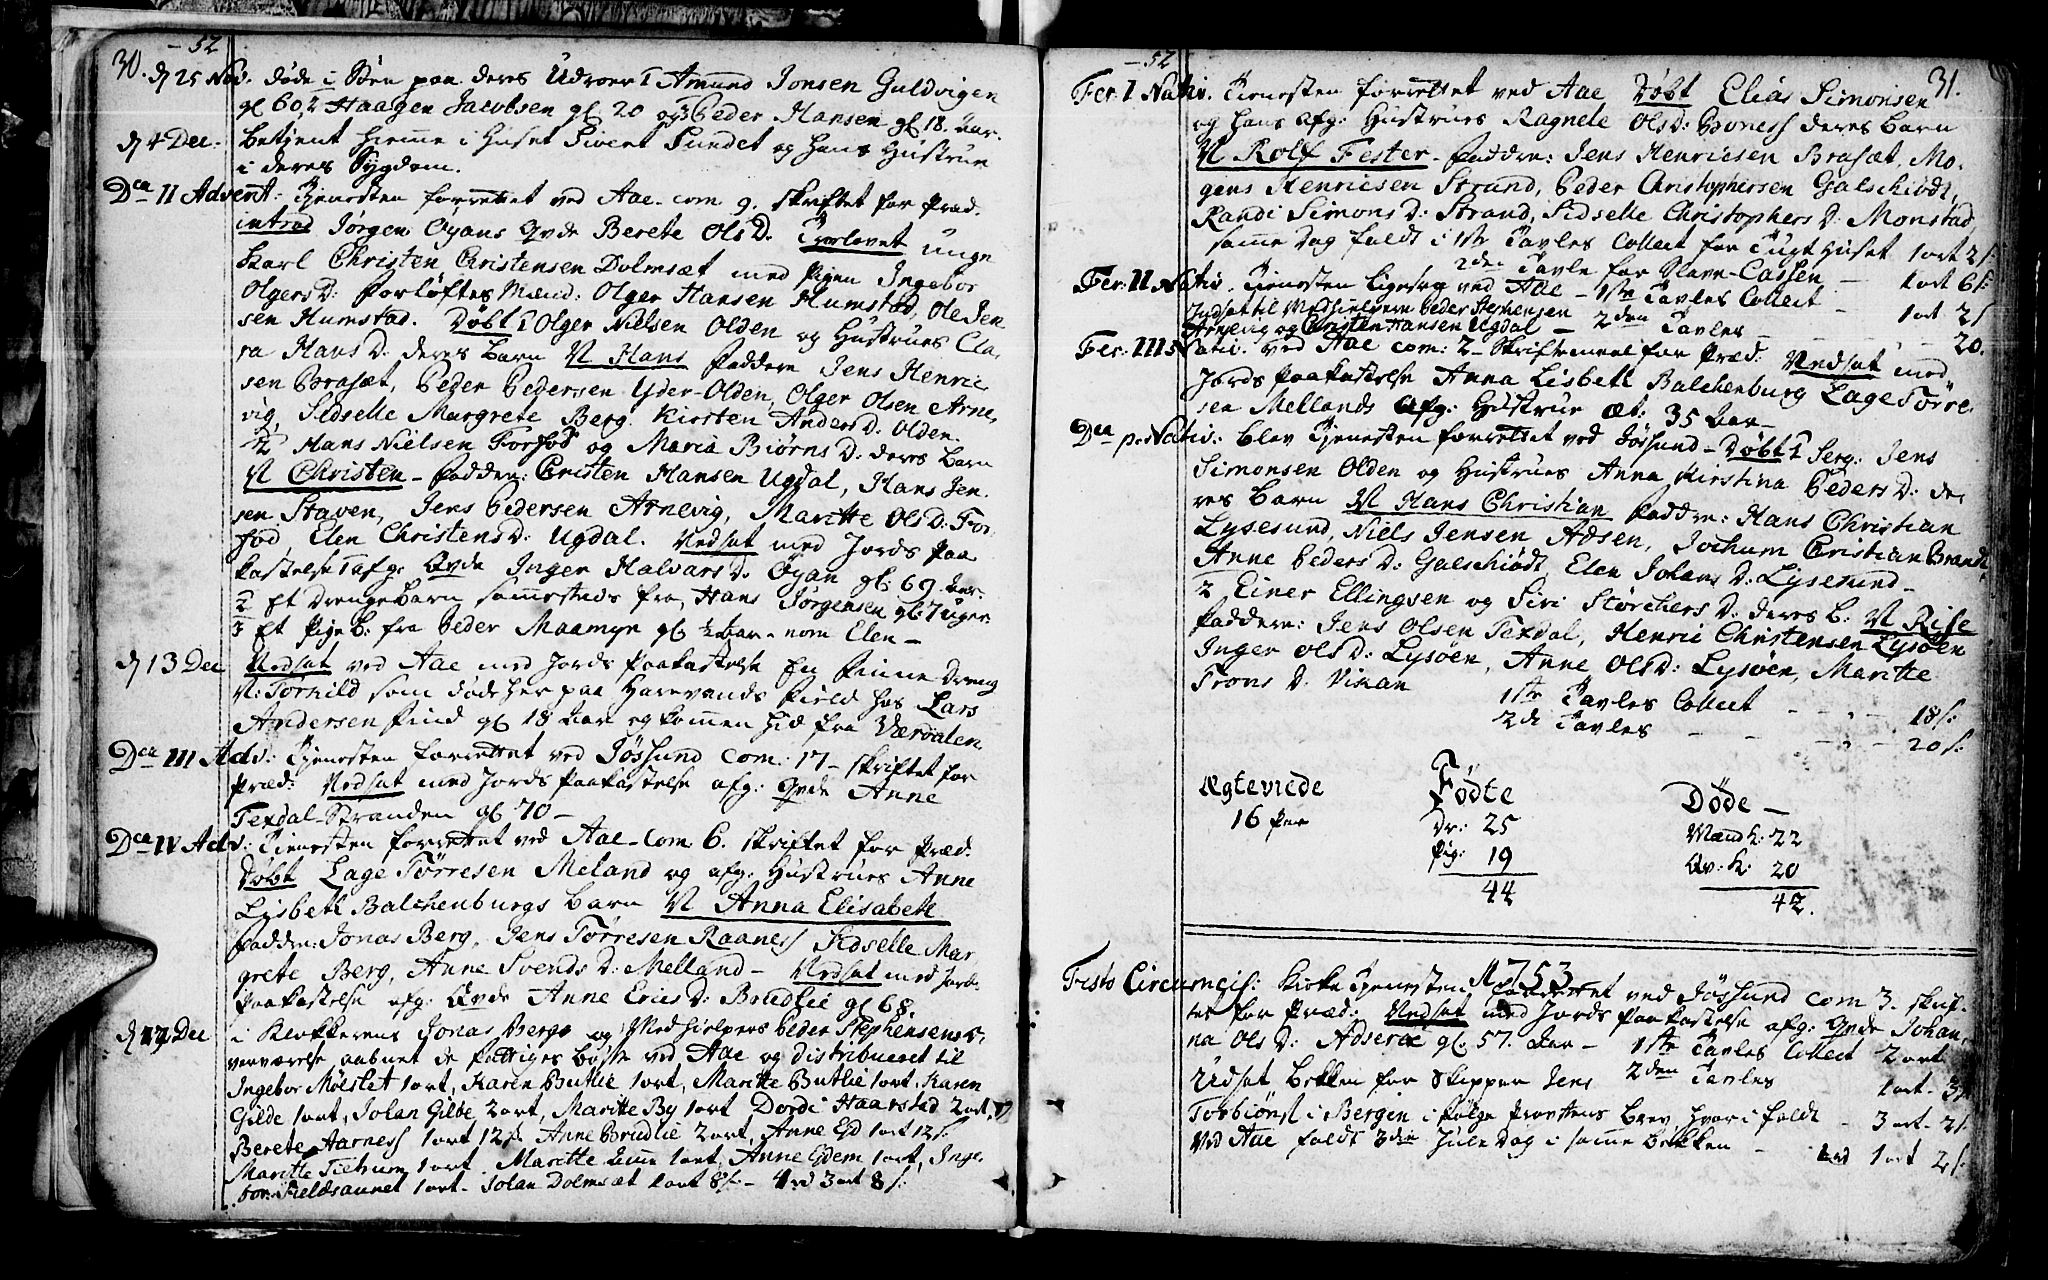 30.
- 52
d 25 Nov. døde i Søen paa deres Udroer 1 Amund Jonsen Guldvigen
gl 60, 2 Haagen Jacobsen gl 20 og 3 Peder Hansen gl 18. Aar.
d 4 Dec. betjent hiemme i Huset Sivert Sundet og hans Hustrue
i deres Sygdom.
Dca II Advent: Tjenesten forrettet ved Aae - com 9. skriftet for Præd.
introd Jørgen Øyans Qvde Berete OlsD. Trolovet unge
Karl Christen Christensen Dolmsæt med Pigen Ingebor
OlgersD: Forløftes Mænd: Olger Hansen Humstad, Ole Jen
sen Humstad. Døbt 1 Olger Nielsen Olden og Hustrues Cla,
ra HansD: deres Barn N Hans Faddere Jens Henric
sen Brasæt, Peder Pedersen Yder-Olden, Olger Olsen Arne,
vig, Sidselle Margrete Berg. Kirsten AndersD: Olden.
2 Hans Nielsen Forfod og Maria BiørnsD: deres Barn
N Christen - Faddere: Cristen Hansen Ugdal, Hans Jen
sen Staven, Jens Pedersen Arnevig, Maritte OlsD: For
fod Elen ChristensD: Ugdal. Nedsat med Jords Paa
kastelse 1 afg: Qvde Inger HalvarsD: Øyan gl: 69 Aar.
2 Et drengebarn sammesteds fra, Hans Jørgensen gl: 7 uger
3 Et Pige b: fra Peder Maamyr gl ½ Aar - nom Elen -
d 13 Dec Nedsat ved Aae med Jords Paakastelse En Finne dreng
N: Tornild som døde her paa Harevands Field hos Lars
Andersen Find gl 18 Aar og kommen hid fra Værdalen
Dca III Adv: Tjenesten forrettet ved Jøssund com: 17 - skriftet for
Præd: Nedsat med Jords Paakastelse afg: Qvde Anne
Texdal-Stranden gl 70 -
Dca IV Adv: Tienesten forrettet ved Aae - Com 6. skriftet for Præd.
Døbt Lage Tørresen Meland og afg: Hustrues Anne
Lisbeth Balchenburgs Barn N Anna Elisabeth
Faddere: Jonas Berg, Jens Tørresen Raaness Sidselle Mar
grete Berg, Anne SvendsD: Melland - Nedsat med Jords
Paakastelse afg: Qvde Anne EricsD: Brudlie gl 68.
Dec i Klokkerens Jonas Bergs og Medhielpers Peder Stephensens
verværelse aabnet de Fattiges bøsse ved Aae og distribueret til
Ingebor Mølslet 1 ort, Karen Butlie 1 ort, Maritte Butlie 1 ort, Karen
Gilde 1 ort, Johan Gilde 2 ort, Maritte By 1 ort Dordi Haarstad 2 ort,
Berete Aarness 1 ort 12 s. Anne Brudlie 2 ort, Anne Eid 1 ort 12 s.
Maritte 1 ort. Maritte 1 ort, Anne 1 ort, Inge,
bor Fieldsaunet 1 ort - Johan Dolmsæt 1 ort 8 s. - 4 rd 3 ort 8 s.
- 52
31.
Fer. I Nativ. Tienesten forrettet ved Aae Døbt Elias Simonsen
og hans afg: Hustrues Ragnele OlsD: Boness deres Barn
N Rolf Fester - Faddere: Jens Henricsen Brasæt, Mo,
gens Henricsen Strand, Peder Christophersen Galschiødt,
Randi SimonsD: Strand, Sidselle ChristophersD: Monstad
samme dag faldt i 1ste Tavles Collect for Tugthuset 1 ort 2 s.
2den Tavle for Slave-Cassen - 1 ort 6 s.
Fer: II Nativ. Tienesten ligesaa ved Aae - 1ste Tavles Collect - 1 ort 2 s
Indsat til Medhielpere Peder Stephensen
Arnevig og Christen Hansen Ugdal - 2den Tavles - - - 20.
Fer: III Nativ. ved Aae com: 2 - Skriftemaal for Præd: Nedsat med
Jords Paakastelse Anna Lisbeth Balchenburg Lage Tørre,
sen Mellands afg: Hustrue æt: 35 Aar -
Dca p. Nativ: blev Tjenesten forrettet ved Jøssund - Døbt 1 Serg: Jens
Simonsen Olden og Hustrues Anna Kirstina PedersD: de,
res Barn N Hans Christian Faddere: Hans Christian
Lysesund, Niels Jensen Adsen, Jochum Cristian Brandt
Anne PedersD: Galschiødt Elen JohansD: Lysesund -
2 Einer Ellingsen og Siri StørchersD: deres b: N Rise
Faddere: Jens Olsen Texdal, Henric Christensen Lysøen
Inger OlsD: Lysøen, Anne OlsD: Lysøen, Maritte
TronsD: Vikan
1ste Tavles Collect - - - 18 s:
2de Tavles - - - - 20 s:
Ægteviede Fødte Døde -
16 Par Dr: 25 Mandk: 22
Pig: 19 Qv: k: 20
44 42.
A 1753
Festo Circumcis: Kirke Tjenesten forrettet ved Jøssund com 3. skrif-
tet for Præd: Nedsat med Jords Paakastelse afg: Qvde Johan,
na OlsD: Adseræ gl: 57. Aar - 1ste Tavles Collect 2 ort
Udsat Bekken for Skipper Jens 2den Tavles 1 ort - 3 s.
Torbiørns i Bergen i følge Provstens brev, hvori faldt - 3 ort - 2 s.
Ved Aae faldt 3die Juledag i samme Bekken - 1 ort 2 s.